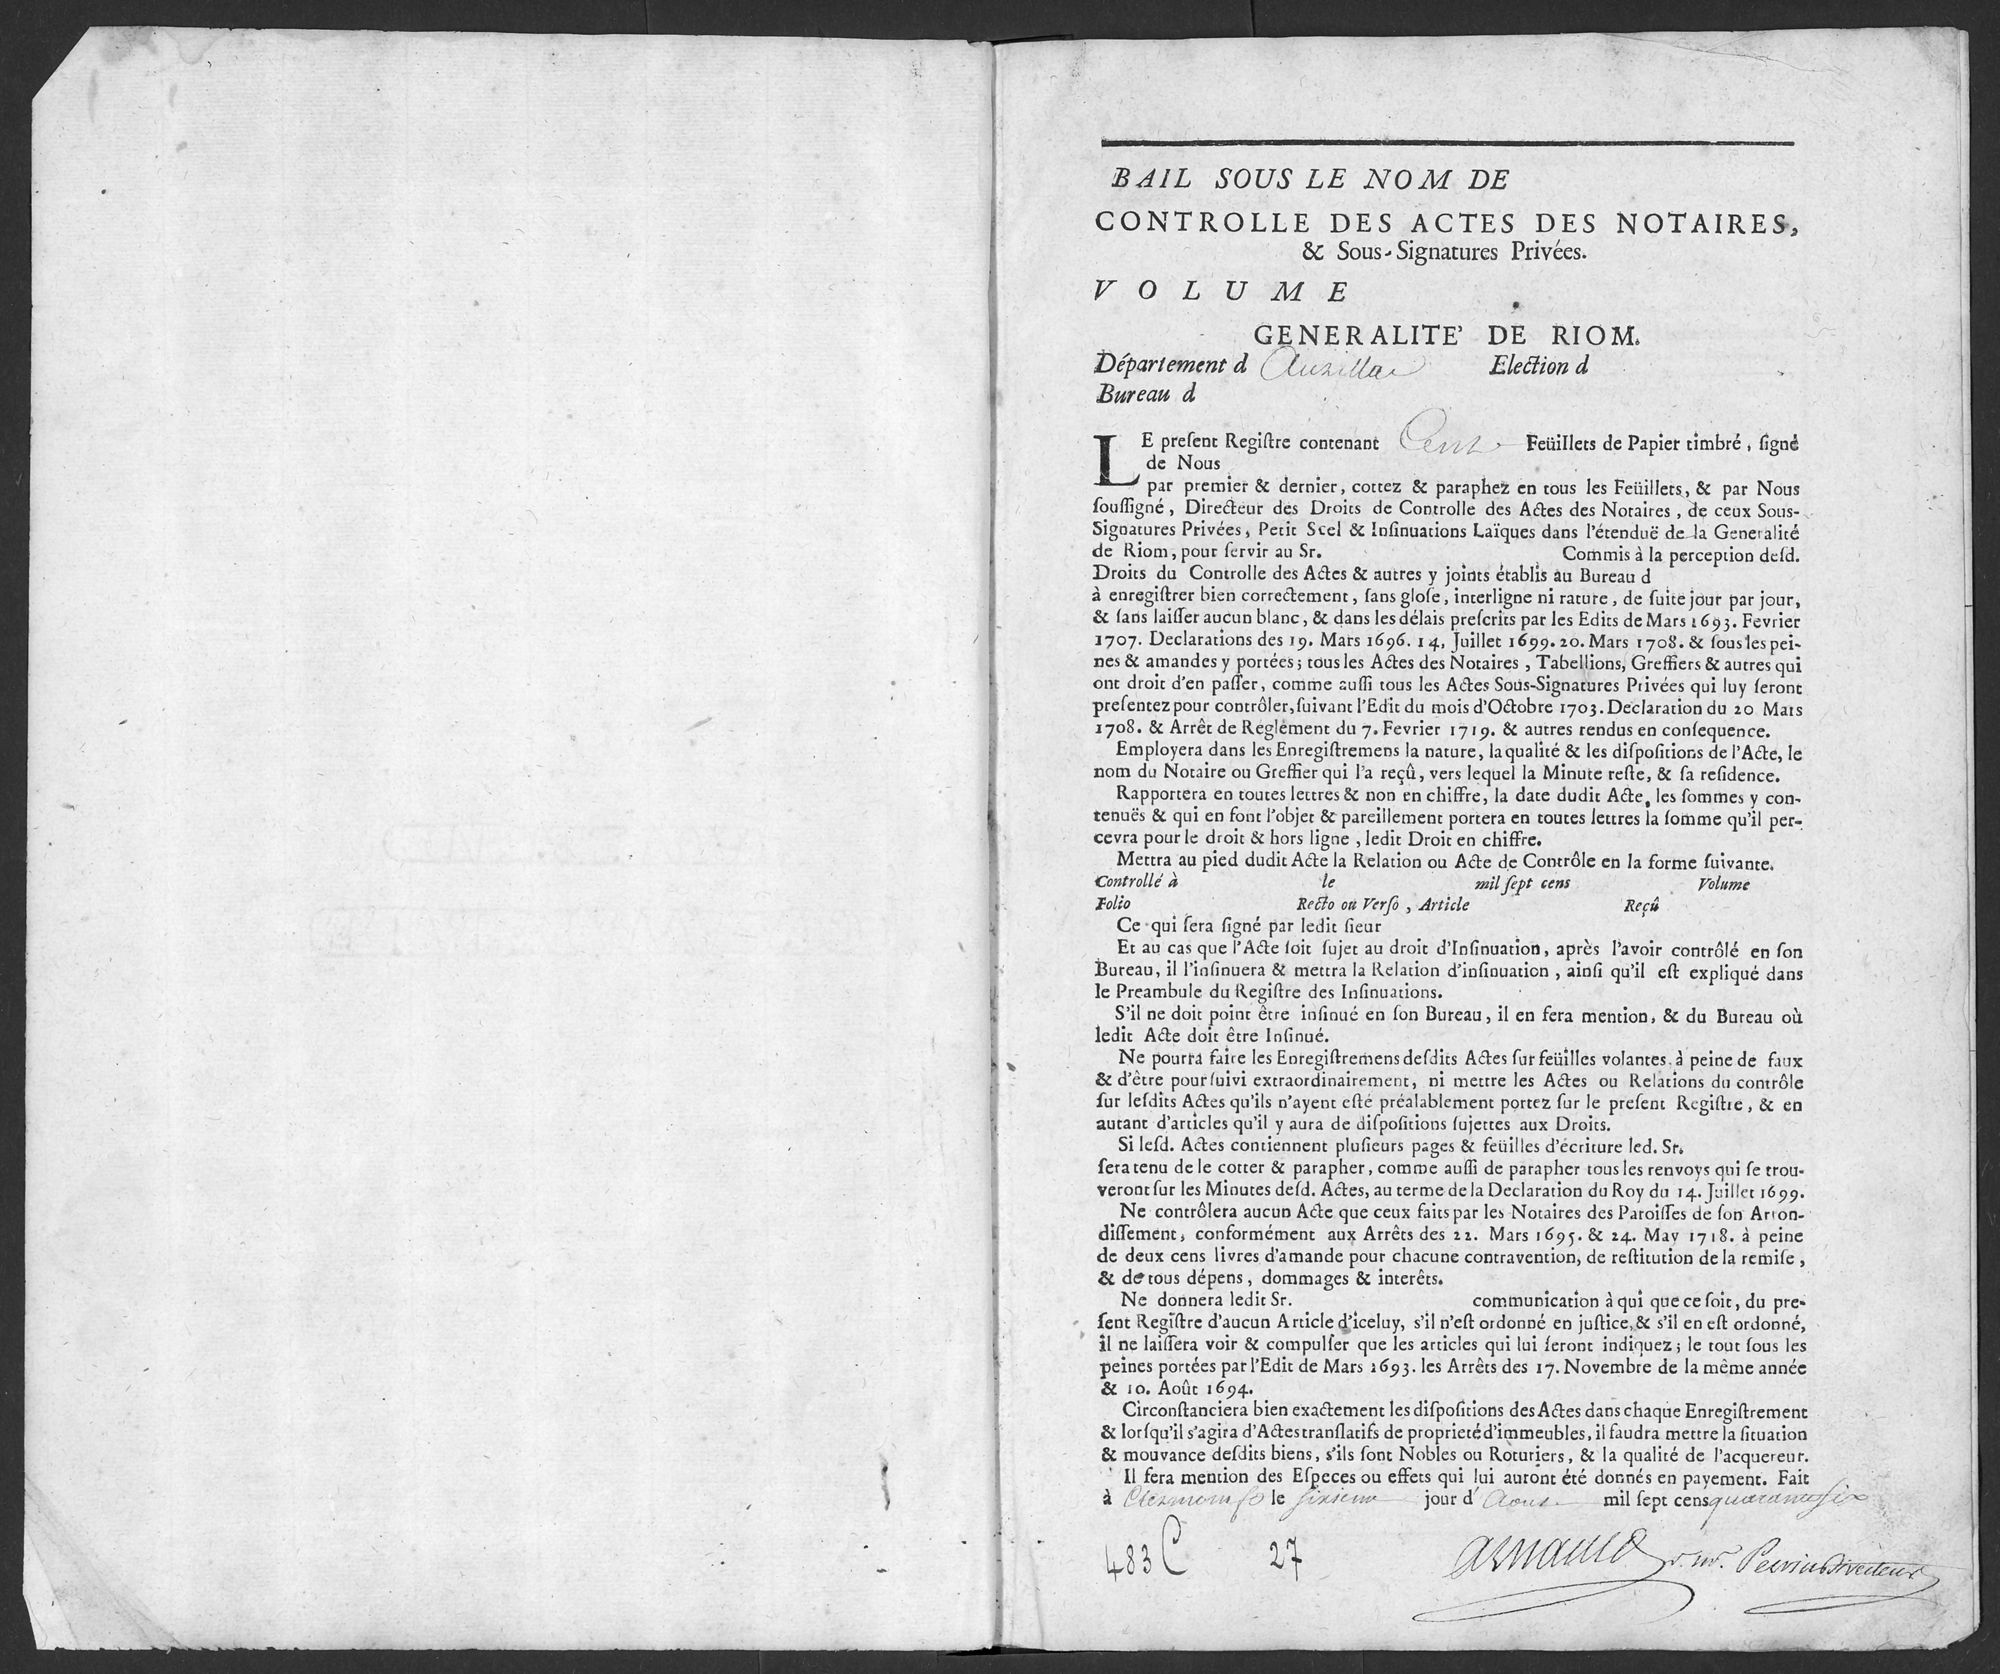 BAIL SOUS LE NOM DE
CONTROLLE DES ACTES DES NOTAIRES,
& Sous-Signatures Privées.
VOLUME
GENERALITE' DE RIOM.
Département d Aurillac Election d
Bureau d
LE preſent Regiſtre contenant Cent Feüillets de Papier timbré, ſigné
de Nous
par premier & dernier, cottez & paraphez en tous les Feüillets, & par Nous
ſouſſigné, Directeur des Droits de Controlle des Actes des Notaires, de ceux Sous-
Signatures Privées, Petit Scel & Inſinuations Laïques dans l'étenduë de la Generalité
de Riom, pour ſervir au Sr. Commis à la perception deſd.
Droits du Controlle des Actes & autres y joints établis au Bureau d
à enregiſtrer bien correctement, ſans gloſe, interligne ni rature, de ſuite jour par jour,
& ſans laiſſer aucun blanc, & dans les délais preſcrits par les Edits de Mars 1693. Fevrier
1707. Declarations des 19. Mars 1696. 14. Juillet 1699. 20. Mars 1708. & ſous les pei-
nes & amandes y portées; tous les Actes des Notaires, Tabellions, Greffiers & autres qui
ont droit d'en paſſer, comme auſſi tous les Actes Sous-Signatures Privées qui luy ſeront
preſentez pour contrôler, ſuivant l'Edit du mois d'Octobre 1703. Declaration du 20 Mars
1708. & Arrêt de Reglement du 7. Fevrier 1719. & autres rendus en conſequence.
Employera dans les Enregiſtremens la nature, la qualité & les diſpoſitions de l'Acte, le
nom du Notaire ou Greffier qui l'a reçû, vers lequel la Minute reſte, & ſa reſidence.
Rapportera en toutes lettres & non en chiffre, la date dudit Acte, les ſommes y con-
tenuës & qui en font l'objet & pareillement portera en toutes lettres la ſomme qu'il per-
cevra pour le droit & hors ligne, ledit Droit en chiffre.
Mettra au pied dudit Acte la Relation ou Acte de Contrôle en la forme ſuivante.
Controllé à le mil ſept cens Volume
Folio Recto ou Verſo, Article Reçû
Ce qui ſera ſigné par ledit ſieur
Et au cas que l'Acte ſoit ſujet au droit d'Inſinuation, après l'avoir contrôlé en ſon
Bureau, il l'inſinuera & mettra la Relation d'inſinuation, ainſi qu'il eſt expliqué dans
le Preambule du Regiſtre des Inſinuations.
S'il ne doit point être inſinué en ſon Bureau, il en fera mention, & du Bureau où
ledit Acte doit être Inſinué.
Ne pourra faire les Enregiſtremens deſdits Actes ſur feüilles volantes, à peine de faux
& d'être pourſuivi extraordinairement, ni mettre les Actes ou Relations du contrôle
ſur leſdits Actes qu'ils n'ayent eſté préalablement portez ſur le preſent Regiſtre, & en
autant d'articles qu'il y aura de diſpoſitions ſujettes aux Droits.
Si leſd. Actes contiennent pluſieurs pages & feüilles d'écriture led. Sr.
ſera tenu de le cotter & parapher, comme auſſi de parapher tous les renvoys qui ſe trou-
veront ſur les Minutes deſd. Actes, au terme de la Declaration du Roy du 14. Juillet 1699.
Ne contrôlera aucun Acte que ceux faits par les Notaires des Paroiſſes de ſon Arron-
diſſement, conformément aux Arrêts des 22. Mars 1695. & 24. May 1718. à peine
de deux cens livres d'amande pour chacune contravention, de reſtitution de la remiſe,
& de tous dépens, dommages & interêts.
Ne donnera ledit Sr. communication à qui que ce ſoit, du pre-
ſent Regiſtre d'aucun Article d'iceluy, s'il n'eſt ordonné en juſtice, & s'il en eſt ordonné,
il ne laiſſera voir & compulſer que les articles qui lui ſeront indiquez; le tout ſous les
peines portées par l'Edit de Mars 1693. les Arrêts des 17. Novembre de la même année
& 10. Août 1694.
Circonſtanciera bien exactement les diſpoſitions des Actes dans chaque Enregiſtrement
& lorſqu'il s'agira d'Actes tranſlatifs de proprieté d'immeubles, il faudra mettre la ſituation
& mouvance deſdits biens, s'ils ſont Nobles ou Roturiers, & la qualité de l'acquereur.
Il fera mention des Eſpeces ou effets qui lui auront été donnés en payement. Fait
à Clermont fd le sixieme jour d' Aoust mil ſept cens quarante six
483 C 27 Arnauld Perrin Directeur